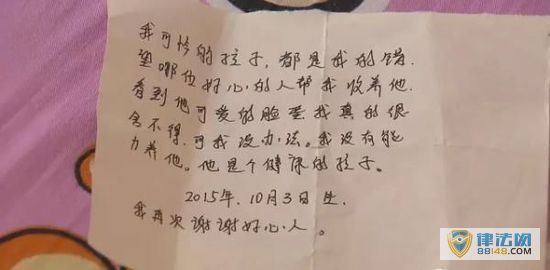 我可怜的孩子，都是我的错.
望哪位好心的人帮我收养他.
看到他可爱的脸蛋我真的很
舍不得.可我没办法。我没有能
力养他。他是个健康的孩子。
2015年.10月3日生.
我再次谢谢好心人。
律法网
88148.com